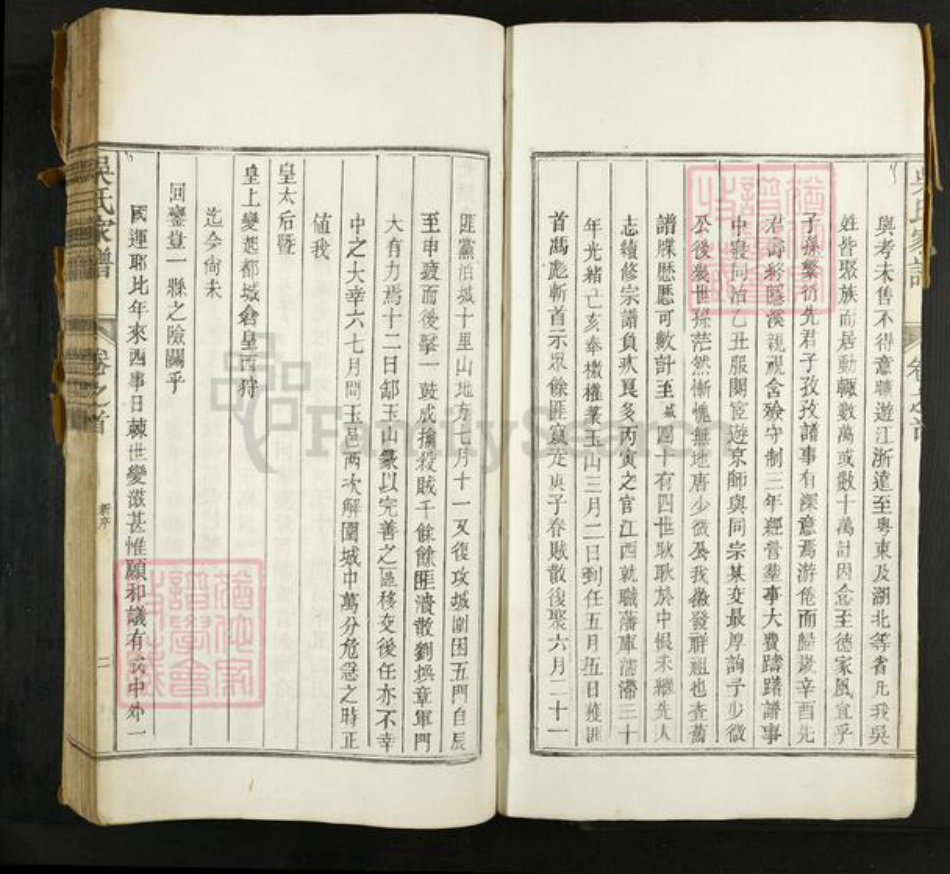 與考未售不得意曠遊江浙遠至粤東及湖北等省凡我吳
姓皆聚族而居動輒數萬或數十萬計因念至德家風宜乎
子孫繁衍先君子孜孜譜事有深意焉游倦而歸歲辛酉先
君壽終隱溪親視含殮守制三年經營塋事大費躊躇譜事
中寢同治乙丑服闋宦遊京師與同宗某交最厚詢予少微
公後幾世孫茫然慚愧無地唐少微公我徽發祥祖也查舊
譜牒歷歷可數計至 圍十有四世耿耿於中恨未繼先人
志續修宗譜負疚良多丙寅之官江西就職藩庫濡滯三十
年光緒己亥奉檄權篆玉山三月二日到任五月五日獲匪
首馮彪斬首示眾餘匪竄走庚子春賊散復聚六月二十一
匪黨泊城十里山地方七月十一又復攻城圍困五門自辰
至申疲而後擊一鼓成擒殺賊千餘餘匪潰散劉煥章軍門
大有力焉十二日卸玉山篆以完善之區移交後任亦不幸
中之大幸六七月間玉邑两次解圍城中萬分危急之時正
値我
皇太后暨
皇上變起都城倉皇西狩
迄今尙未
回鑾豈一縣之險關乎
國運耶比年來西事日棘世變滋甚惟願和議有成中外一
吳氏家譜
卷之首
新序
二
吳氏家譜
卷之首
FamilySearch